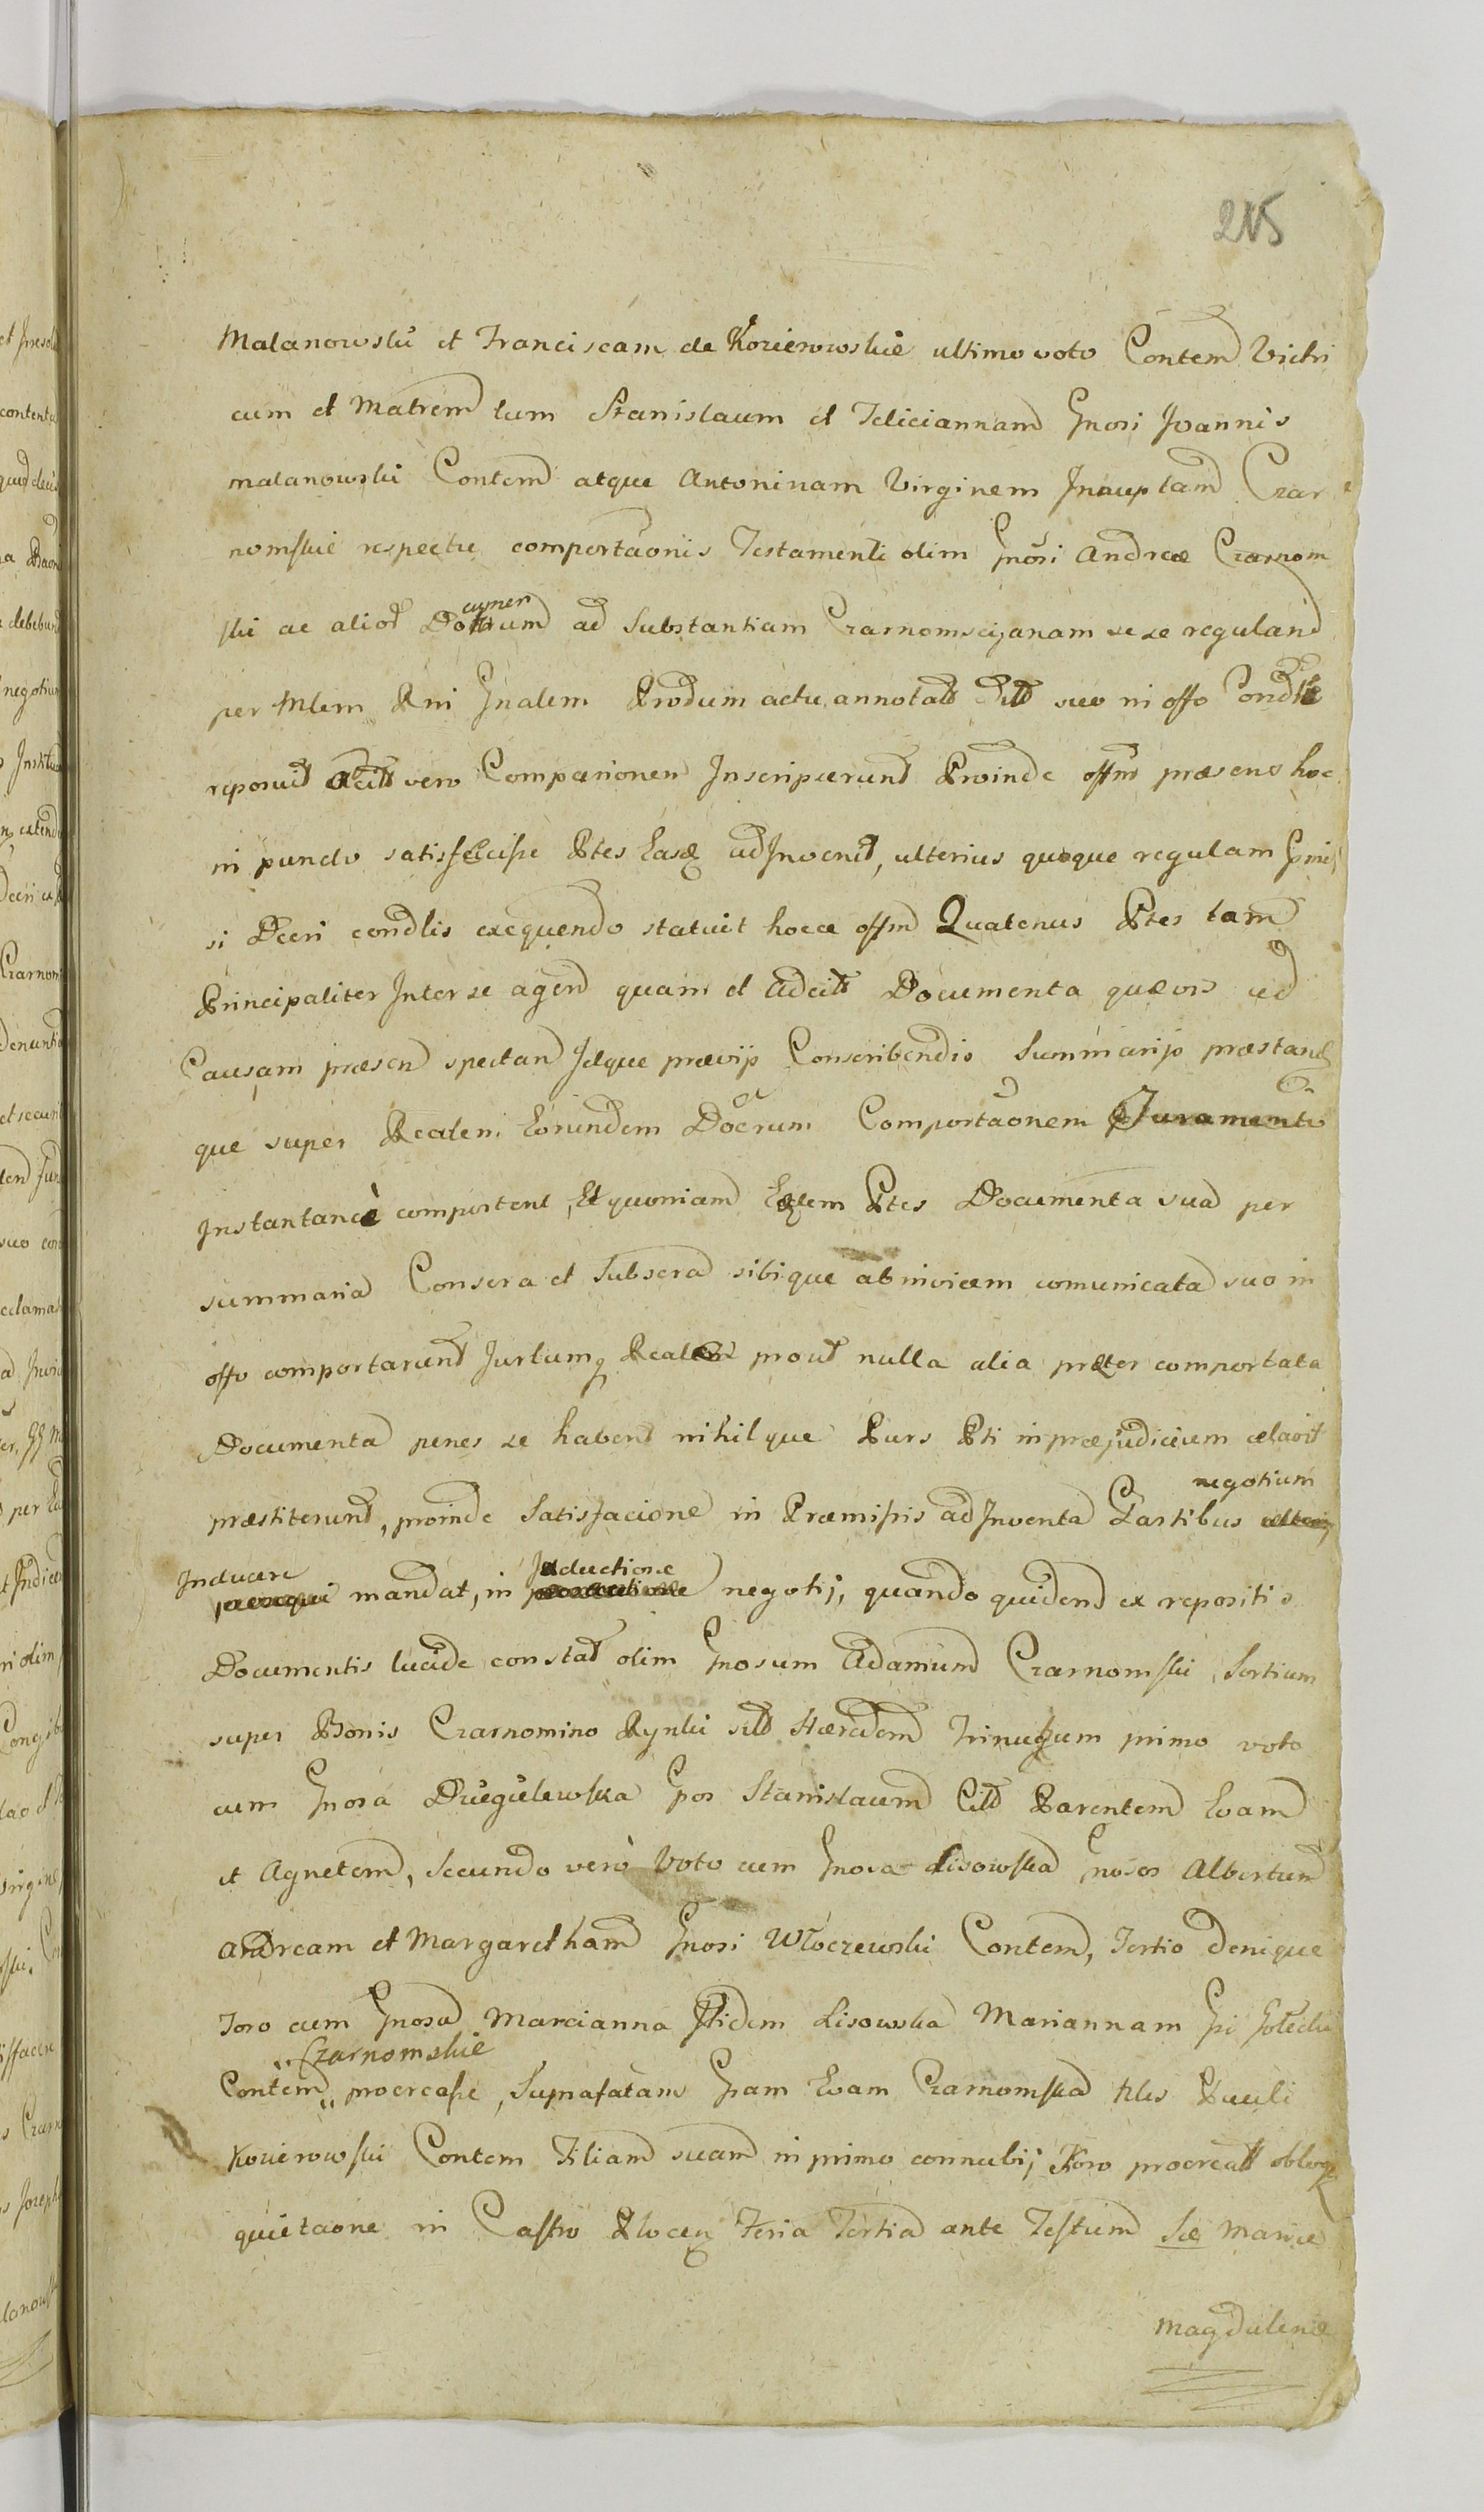 215
Malanowski et Franciscam de Kozierowskie ultimo voto Contem Vichri
cum et Matrem tum Stanislaum et Feliciannam Gnosi Joannis
malanowski Contem atque Antoninam Virginem Innuptam Czar
nomskie respectu comportaonis Testamenti olim Gnosi Andreæ Czarnom
ski ac alior Documentum ad Substantiam Czarnomscijanam se se reguland
per Mlem Rni Gnalem actu annotatt suo in offo Condlis
reposuit vero Comparionen Inscripserunt Proinde offm præsens hoc
in puncto satisfecisse Ptes Easq adInvenit, ulterius quoque regulam
si Dcri condlis exequendo statuit hocce offm Quatenus Ptes tam
Principaliter Inter se agend quam et Adcitt Documenta quævis ad
Causam præsen spectan Idque prævijs Conscribendis Summarijs præstan
que super Realem Eorundem Docrum Comportaonem Juramento
Instantaneè comportent, Et quoniam Eædem Ptes Documenta sua per
summaria Conscra et Subscra sibique ab invicem comunicata suo in
offo comportarunt Jurtumq Realem prout nulla alia præter comportata
Documenta penes se habent nihilque Pars Pti in præjudicium celavit
præstiterunt, proinde Satisfacione in Præmissis adInventa Partibus negotium
Inducere mandat, in Inductione negotij, quando quidem ex repositis
Documentis lucide constat olim Gnosum Adamum Czarnomski Sortium
super Bonis Czarnomino Rynki sitt Hæredem Trinugum primo voto
cum Gnosa Driegielewska Gos Stanislaum Citt Parentem Evam
et Agnetem, Secundo verò Voto cum Gnosa Lisowska Gnosos Albertum
Andream et Margaretham Gnosi Włoczewski Contem, Tertio denique
Toro cum Gnosa Marcianna Itidem Lisowska Mariannam Gi
Contem Czarnomskie procreasse, Suprafatam Gsam Evam Czarnomska Pauli
Kozierowski Contem Filiam suam in primo connubij Toro procreatt
quietaone in Castro Plocen Feria Tertia ante Festum Sæ Mariæ
Magdalenæ